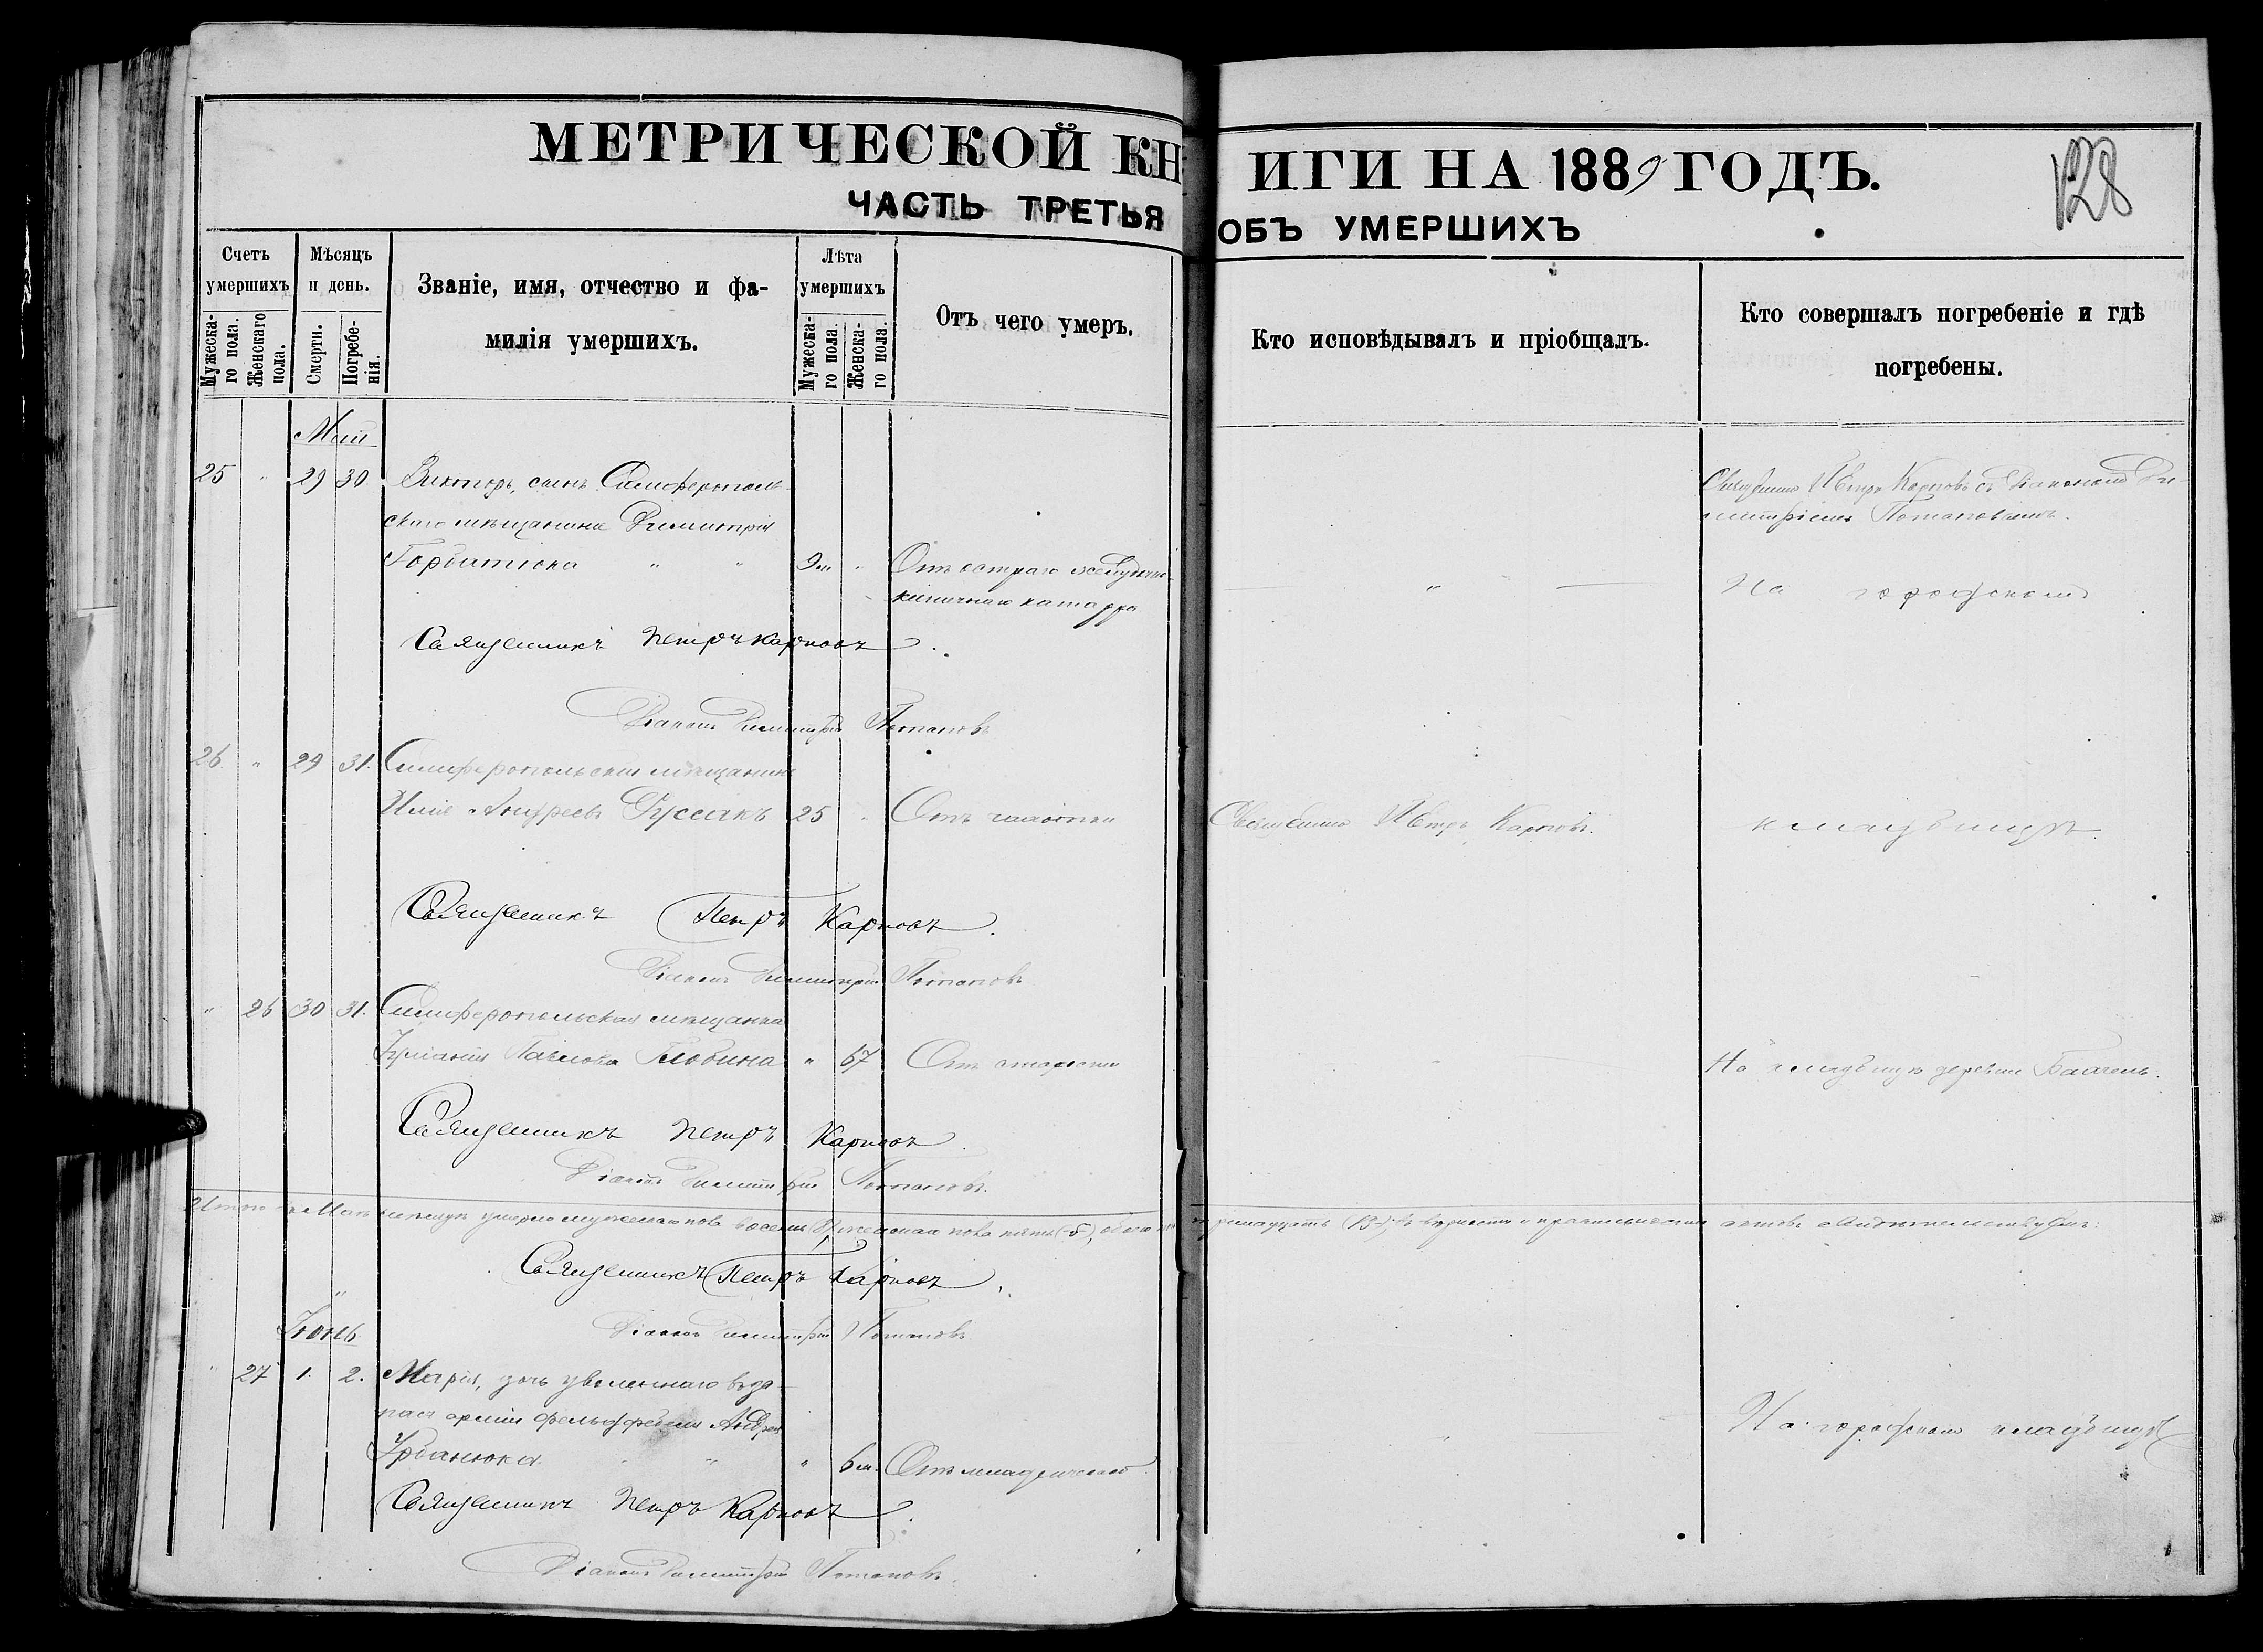 МЕТРИЧЕСКОЙ КНИГИ НА 1889 ГОДЪ.
128
ЧАСТЬ ТРЕТЬЯ ОБЪ УМЕРШИХЪ
Счетъ умершихъ
Мужеска-
го пола.
Женскаго
пола.
Мѣсяцъ и день.
Смерти.
Погребе-
нія.
Званіе, имя, отчество и фа-
милія умершихъ.
Лѣта умершихъ
Мужеска-
го пола.
Женска-
го пола.
Отъ чего умеръ.
Кто исповѣдывалъ и пріобщалъ.
Кто совершалъ погребеніе и гдѣ
погребены.
Май
25 " 29 30 Викторъ, сынъ Симферополь-
скаго мѣщанина Димитрія
Горбатюка " " 9 м "
Отъ остраго желудочно-
кишечнаго катарра
Священникъ Петръ Карповъ съ Діакономъ Ди-
митріемъ Потаповымъ.
На городскомъ
Священникъ Петръ Карповъ.
Діаконъ Димитрій Потаповъ
26 " 29 31. Симферопольскій мѣщанинъ
Илія Андреевъ Руссакъ 25 " Отъ чахотки
Священникъ Петръ Карповъ.
кладбищѣ.
Священникъ Петръ Карповъ.
Діаконъ Димитрій Потаповъ
" 26 30 31. Симферопольская мѣщанка
Іуліанія Павлова " 67 Отъ старости
На кладбищѣ деревни
Священникъ Петръ Карповъ.
Діаконъ Димитрій Потаповъ.
Итого въ Маѣ мѣсяцѣ умерло мужескаго пола восемь (8), женскаго пола пять (5), обоего тринадцать (13). Въ вѣрности и правильности актовъ свидѣтельствуемъ:
Священникъ Петръ Карповъ.
Діаконъ Димитрій Потаповъ
Іюнь
" 27 1. 2. Марія, дочь уволеннаго въ за-
пасъ арміи фельдфебеля Андрея
Урбанюка " " " 6 м. Отъ младенческой.
На городскомъ кладбищѣ
Священникъ Петръ Карповъ.
Діаконъ Димитрій Потаповъ.